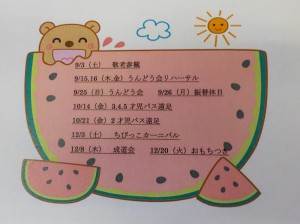 9/3（土）　敬老参観
9/15,16（木,金）うんどう会リハーサル
9/25（日）うんどう会　9/26（月）振替休日
10/14（金）3,4,5才児バス遠足
10/21（金）2才児バス遠足
12/3（土）　ちびっこカーニバル
12/8（木）　成道会　12/20（火）おもちつき